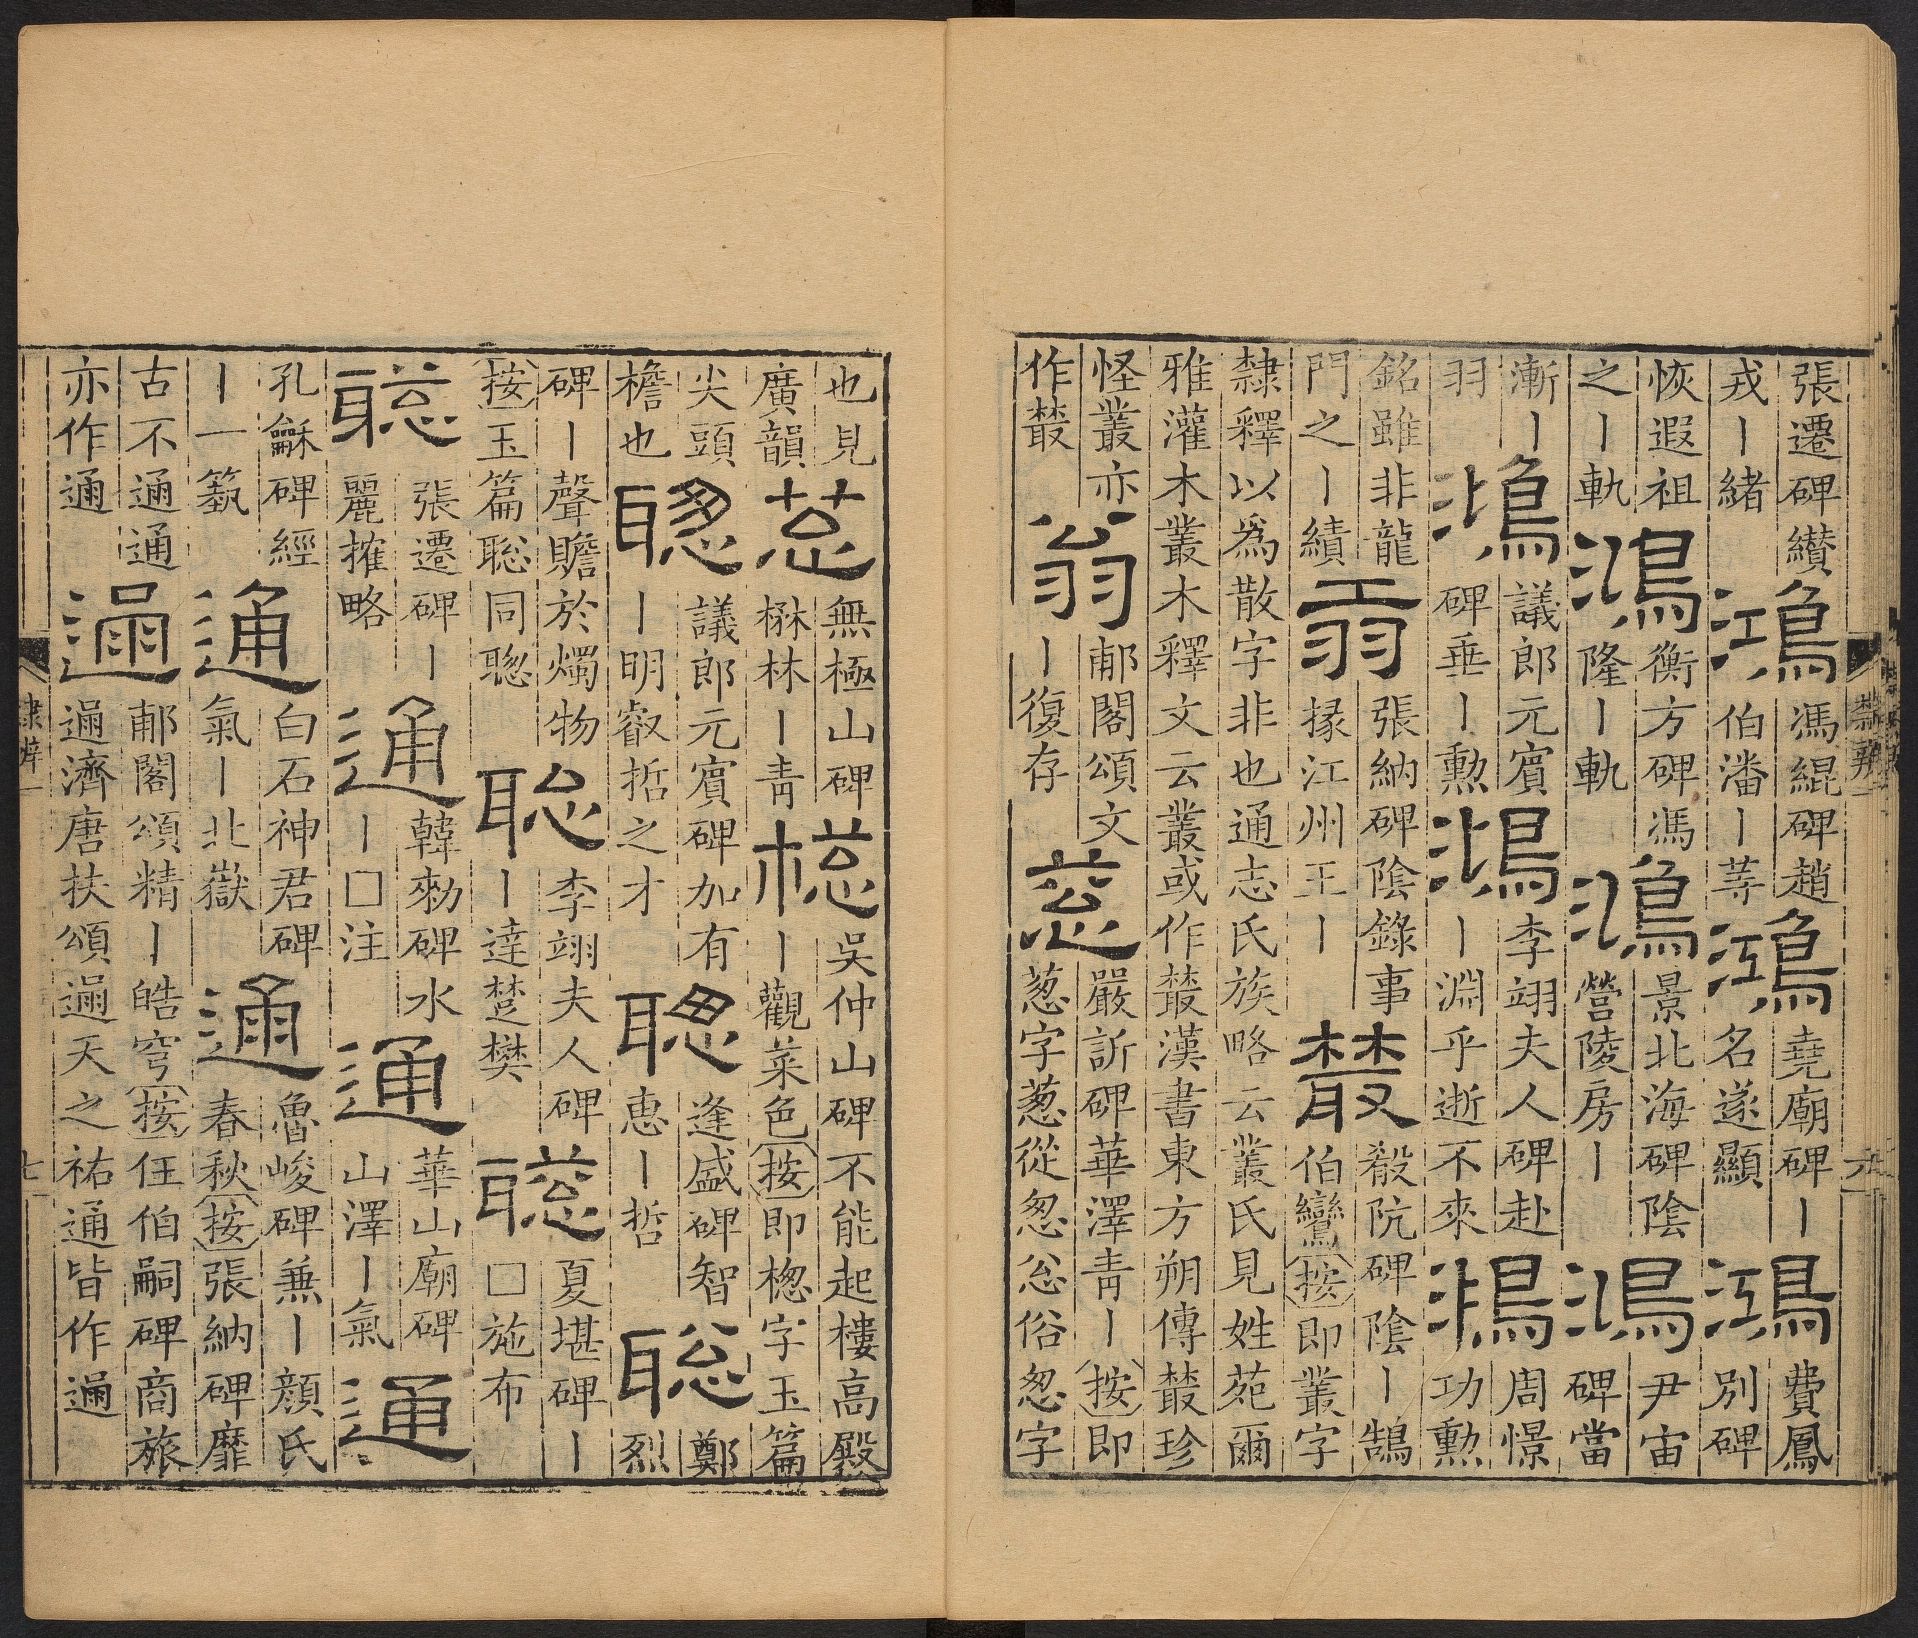 張遷碑纘戎丨緒鴻馮緄碑趙伯潘丨等鴻堯廟碑丨名遂顯鴻費鳳別碑
恢遐祖之丨軌鴻衡方碑馮隆丨軌鴻景北海碑陰營陵房丨鴻尹宙碑當
漸丨羽鴻議郎元賓碑垂丨勲鴻李翊夫人碑赴丨淵乎逝不來鴻周憬功勲
銘雖非龍門之丨績翁張納碑陰錄事掾江州王丨藂殽阬碑陰丨鵠伯鸞按即叢字
隸釋以爲散字非也通志氏族略云叢氏見姓苑爾雅灌木叢木釋文云叢或作藂漢書東方朔傳藂珍
怪叢亦作藂翁郙閣頌文丨復存蔥嚴訢碑華澤青丨按即葱字蔥從怱忩俗怱字
隸辨一
六
也見廣韻蔥無極山碑楙林丨青樬吳仲山碑不能起樓高殿丨觀菜色按即楤字玉篇
尖頭檐也聰議郎元賓碑加有丨明叡哲之才聰逢盛碑智惠丨哲聰鄭烈
碑丨聲贍於燭物按玉篇聡同聰聡李翊夫人碑丨達楚樊聰夏堪碑丨□施布
聰張遷碑丨麗搉略通韓勑碑水丨□注通華山廟碑山澤丨氣通
孔龢碑經丨一蓺通白石神君碑氣丨北嶽通魯峻碑兼丨顏氏春秋按張納碑靡
古不通通亦作通逼郙閣頌精丨皓穹按伍伯嗣碑商旅逼逼濟唐扶頌逼天之祐通皆作逼
隸辨一
七